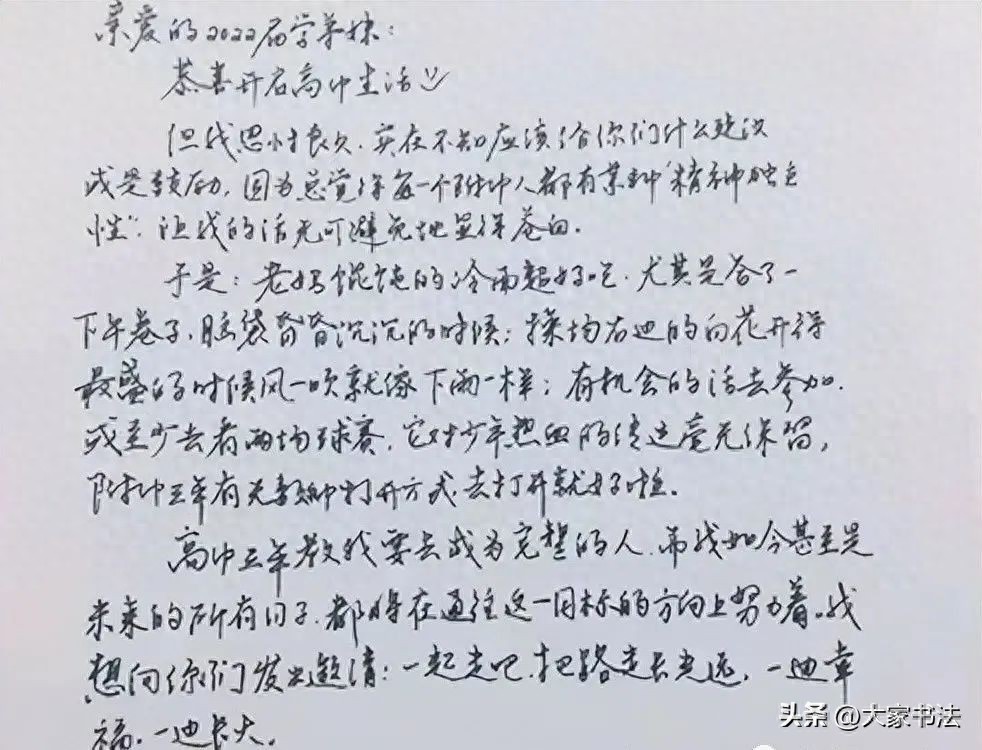 亲爱的2022届学弟妹：
恭喜开启高中生活
但我思忖良久，实在不知应该给你们什么建议
或是鼓励，因为总觉得每一个附中人都有某种“精神独立
性”，让我的话无可避免地显得苍白。
于是：老妈馄饨的冷面超好吃，尤其是答了一
下午卷子，脑袋昏昏沉沉的时候；操场右边的白花开得
最盛的时候风一吹就像下雨一样；有机会的话去参加，
或至少去看两场球赛，它对少年热血的传达毫无保留，
附中三年有无数种打开方式，去打开就好啦。
高中三年教我要去成为完整的人，而我如今甚至是
未来的所有日子，都将在通往这一目标的方向上努力着。我
想向你们发出邀请：一起走吧，把路走长走远，一边幸
福，一边长大。
头条 @大家书法